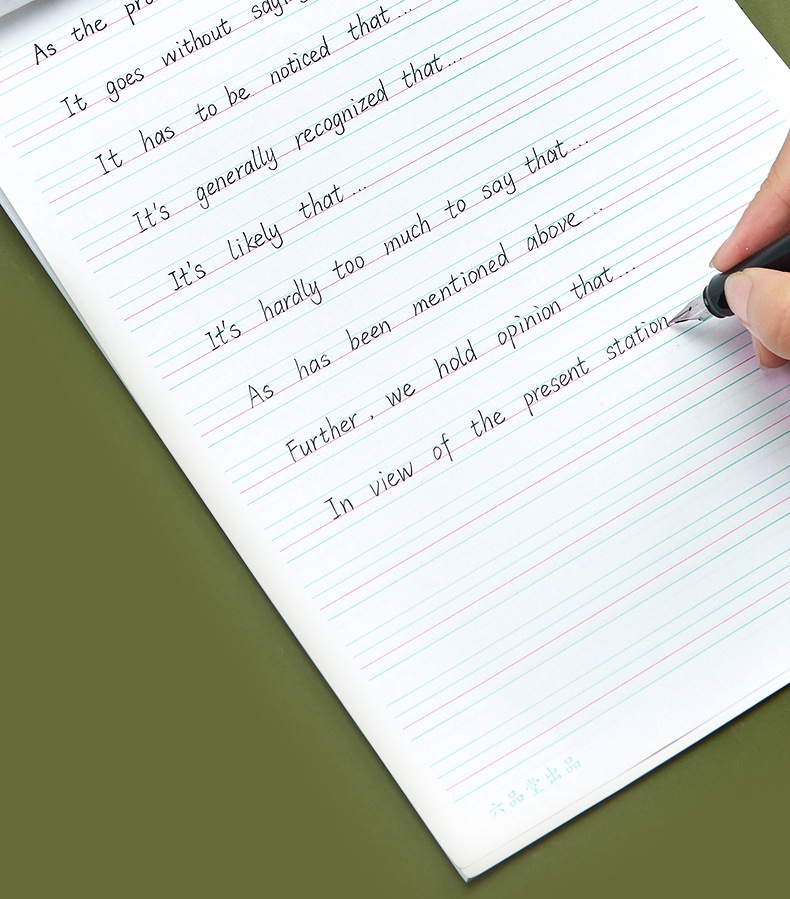 As the
It goes without
It has to be noticed that...
It's generally recognized that...
It's likely that...
It's hardly too much to say that...
As has been mentioned above...
Further, we hold opinion that...
In view of the present station
六品堂出品